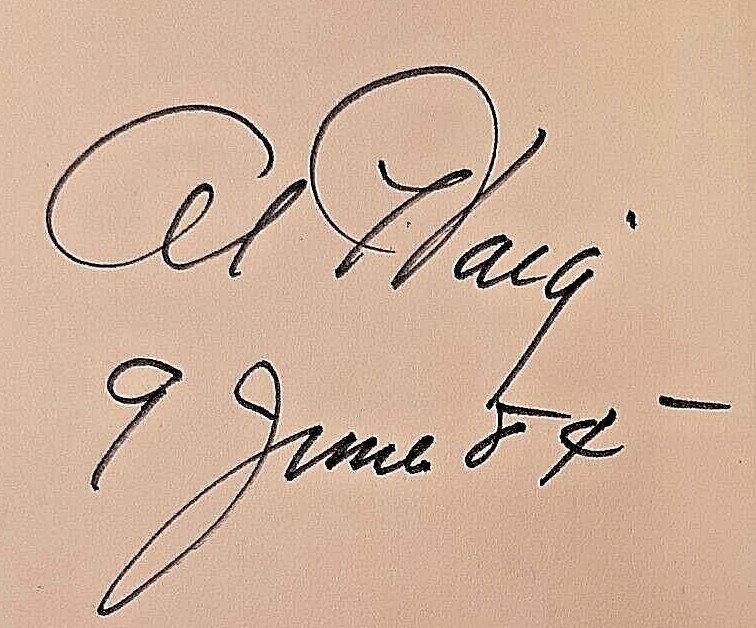 Al Haig
9 June 84 -